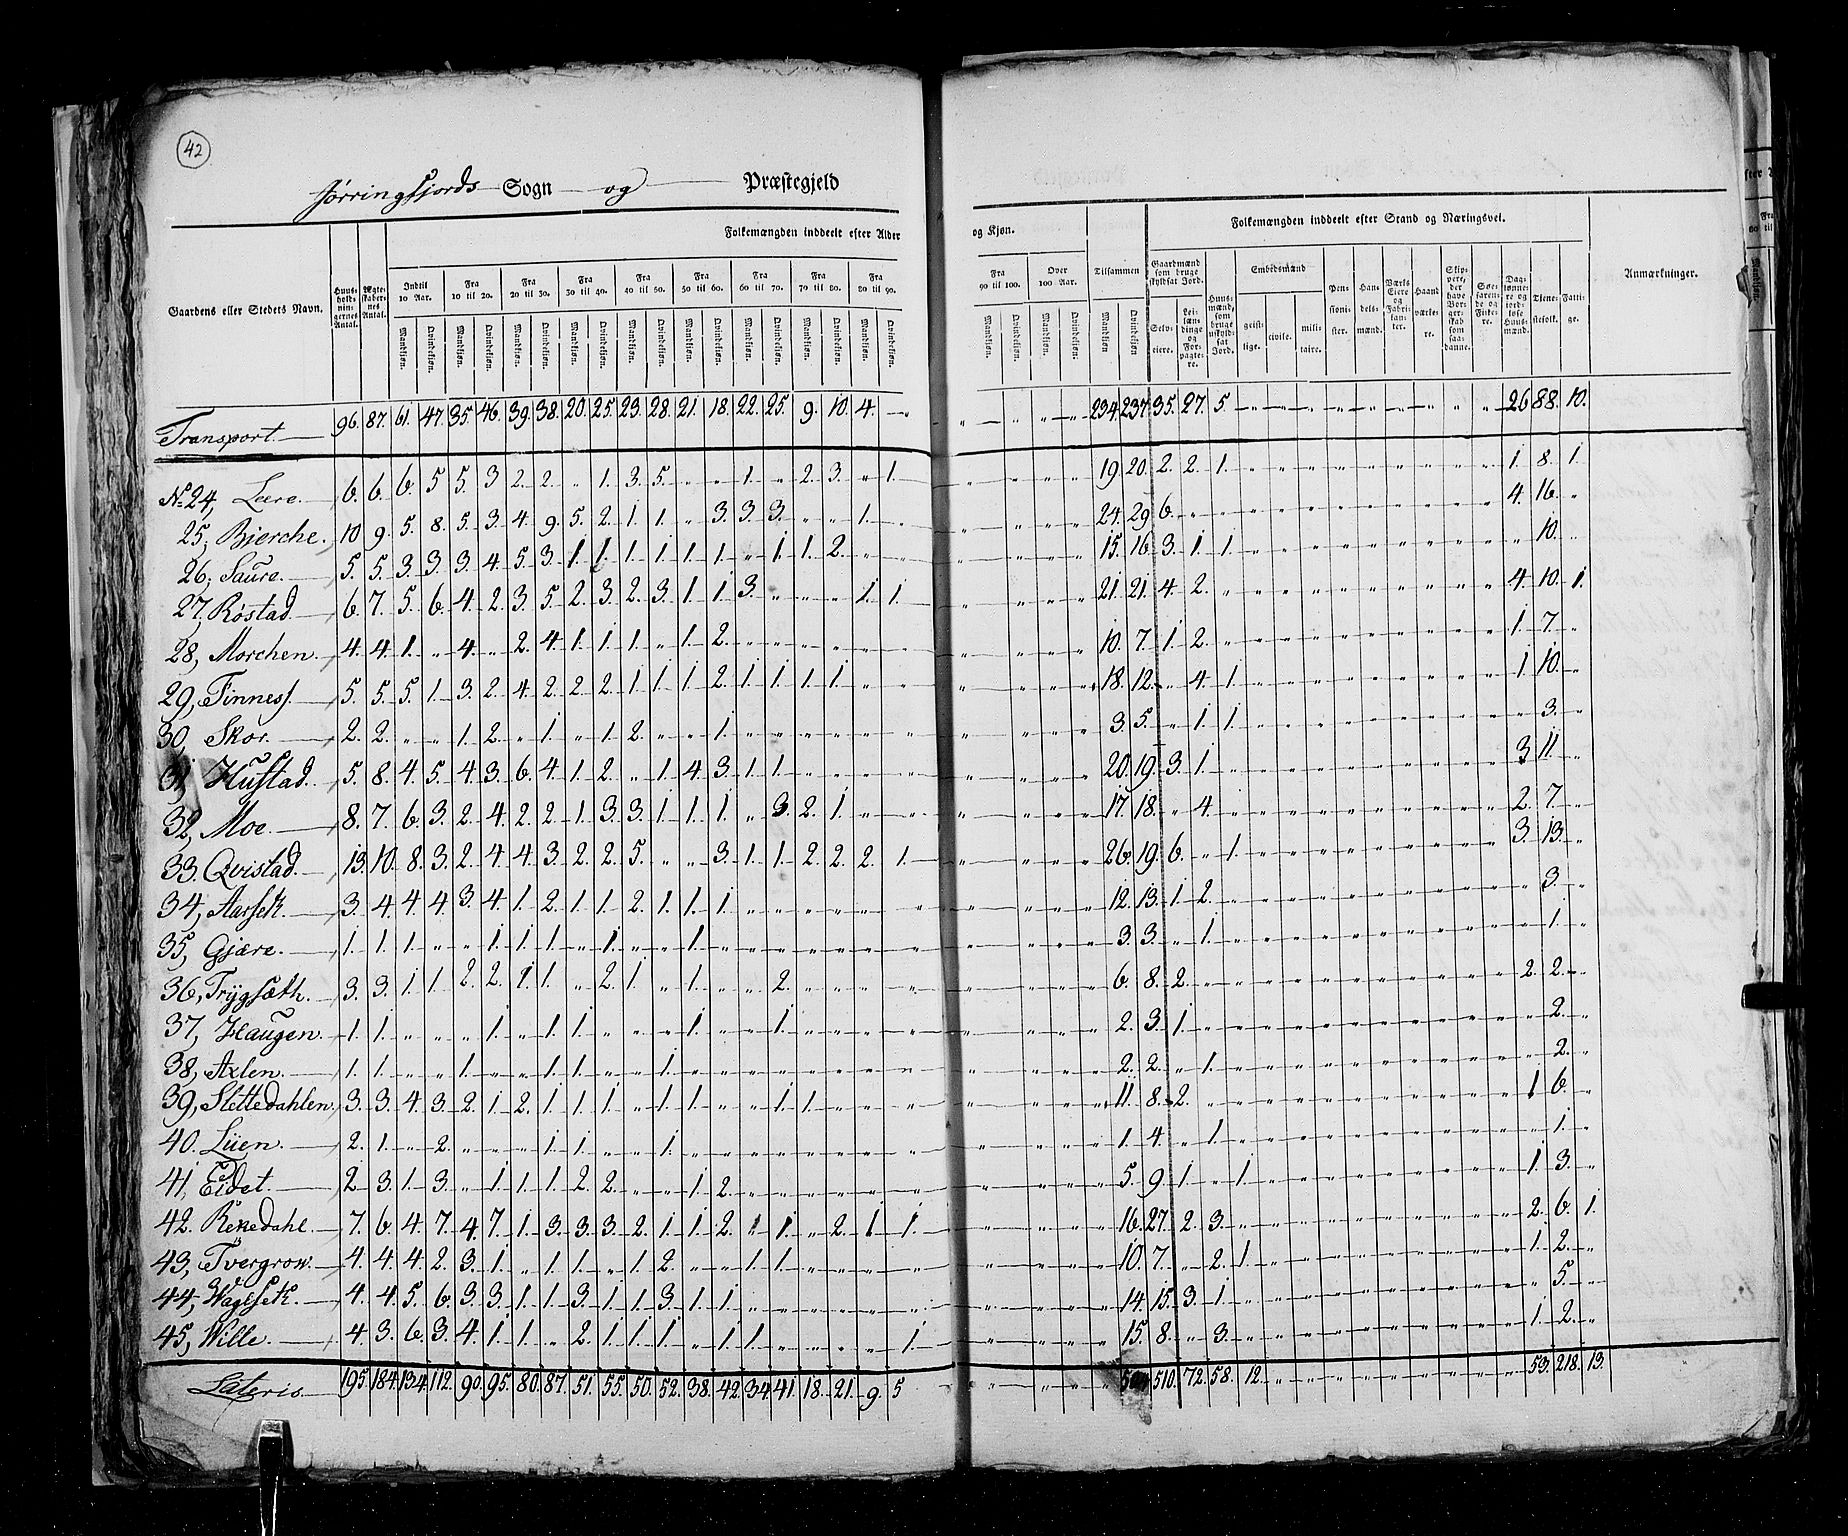 42
Jørringfjords Sogn og Præstegjeld
Folkemængden inddeelt efter Alder og Kjøn. Folkemængden inddeelt efter Stand og Næringsvei.
Gaardens eller Stedets Navn. Huusholdningernes Antal. Ægteskabernes Antal. Indtil 10 Aar. Fra 10 til 20. Fra 20 til 30. Fra 30 til 40. Fra 40 til 50. Fra 50 til 60. Fra 60 til 70. Fra 70 til 80. Fra 80 til 90. Fra 90 til 100. Over 100 Aar. Tilsammen Gaardmænd som bruge skyldsat Jord. Huusmænd, som bruge uskyldsat Jord. Embedsmænd Pensionister. Handelsmænd. Værks Eiere og Fabrikanter. Haandværkere. Skippere, der have Borgerskab som saadanne. Søefarende og Fiskere. Daglønnere og jordløse Huusmænd. Tjenestefolk. Fattige. Anmærkninger.
Mandkjøn. Qvindekjøn. Mandkjøn. Qvindekjøn. Mandkjøn. Qvindekjøn. Mandkjøn. Qvindekjøn. Mandkjøn. Qvindekjøn. Mandkjøn. Qvindekjøn. Mandkjøn. Qvindekjøn. Mandkjøn. Qvindekjøn. Mandkjøn. Qvindekjøn. Mandkjøn. Qvindekjøn. Mandkjøn. Qvindekjøn. Mandkjøn Qvindekjøn Selveiere. Leilændinge og Forpagtere. geistlige. civile. militaire.
Transport 96. 87. 61. 47. 35. 46. 39. 38. 20. 25. 23. 28. 21. 18. 22. 25. 9. 10. 4. „ „ „ „ „ 234. 237. 35. 27. 5. „ „ „ „ „ „ „ „ „ 26 88. 10.
No 24, Leere. 6. 6. 6. 5 5. 3 2. 2. „ 1. 3. 5. „ „ 1. „ 2. 3. „ 1. „ „ „ „ 19. 20. 2. 2. 1. „ „ „ „ „ „ „ „ „ 1. 8. 1.
25, Bjerche. 10 9. 5. 8. 5. 3. 4. 9. 5. 2. 1. 1. „ 3. 3. 3. „ „ 1. „ „ „ „ „ 24. 29 6. „ „ „ „ „ „ „ „ „ „ „ 4. 16. „
26, Saure. 5. 5. 3. 3. 3. 4. 5. 3. 1. 1. 1. 1. 1. 1. „ 1. 1. 2. „ „ „ „ „ „ 15. 16. 3. 1. 1. „ „ „ „ „ „ „ „ „ „ 10. „
27, Røstad 6. 7. 5. 6. 4. 2. 3. 5. 2. 3. 2. 3. 1. 1. 3. „ „ „ 1. 1. „ „ „ „ 21. 21. 4. 2. „ „ „ „ „ „ „ „ „ „ 4. 10. 1.
28, Morchen. 4. 4. 1. „ 4. „ 2. 4. 1. 1. 1. „ 1. 2. „ „ „ „ „ „ „ „ „ „ 10. 7. 1. 2. „ „ „ „ „ „ „ „ „ „ 1. 7. „
29, Finness. 5. 5. 5. 1. 3. 2. 4. 2. 2. 2. 1. 1. 1. 2. 1. 1. 1. 1. „ „ „ „ „ „ 18. 12. „ 4. 1. „ „ „ „ „ „ „ „ „ 1 10. „
30, Skor. 2. 2. „ „ 1. 2. „ 1. „ 1. 2. „ „ 1. „ „ „ „ „ „ „ „ „ „ 3. 5. „ 1. 1. „ „ „ „ „ „ „ „ „ „ 3. „
31, Hustad. 5. 8. 4. 5. 4. 3. 6. 4. 1. 2. „ 1. 4. 3. 1. 1. „ „ „ „ „ „ „ „ 20. 19. 3. 1. „ „ „ „ „ „ „ „ „ „ 3 11. „
32, Moe. 8. 7. 6. 3. 2. 4. 2. 2. 1. 3. 3. 1. 1. 1. „ 3. 2. 1. „ „ „ „ „ „ 17. 18. „ 4. „ „ „ „ „ „ „ „ „ „ 2. 7. „
33. Qvistad. 13. 10. 8. 3. 2. 4. 4. 3. 2. 2. 5. „ „ 3. 1. 1. 2. 2. 2. 1. „ „ „ „ 26. 19. 6. „ 1. „ „ „ „ „ „ „ „ „ 3. 13. „
34, Aarsetk. 3. 4. 4. 4. 3. 4. 1. 2. 1. 1. 2. 1. 1. 1. „ „ „ „ „ „ „ „ „ „ 12. 13. 1. 2. „ „ „ „ „ „ „ „ „ „ „ 3. „
35, Gjære. 1. 1. 1. „ „ 1. 1. 1. „ 1. „ „ 1. „ „ „ „ „ „ „ „ „ „ „ 3. 3. „ 1. „ „ „ „ „ „ „ „ „ „ „ 1. „
36, Trygsæth. 3. 3. 1. 1. 2. 2. 1. 1. „ 2. 1. „ 1. „ „ 2. „ „ „ „ „ „ „ „ 6. 8. 2. „ „ „ „ „ „ „ „ „ „ „ 2. 2. „
37, Haugen. 1. 1. „ „ „ 1. „ 1. 1. „ „ „ 1. „ „ 1. „ „ „ „ „ „ „ „ 2. 3. 1. „ „ „ „ „ „ „ „ „ „ „ „ 2. „
38, Axlen. 1. 1. „ „ 1. „ „ 1. 1. „ „ 1. „ „ „ „ „ „ „ „ „ „ „ „ 2. 2. „ 1. „ „ „ „ „ „ „ „ „ „ „ 2. „
39, Slettedahlen. 3. 3. 4. 3. 2. 1. 2. 1. 1. 1. „ 1. 1. „ „ 1. 1. „ „ „ „ „ „ „ 11. 8. 2. „ „ „ „ „ „ „ „ „ „ „ 1. 6. „
40. Lien. 2. 1. „ 2. „ „ „ 1. 1. „ „ 1. „ „ „ „ „ „ „ „ „ „ „ „ 1. 4. „ 1. „ „ „ „ „ „ „ „ „ „ „ 1. „
41, Eidet. 2. 3. 1. 3. „ 1. 1. 1. 2. 2. „ „ 1. 2. „ „ „ „ „ „ „ „ „ „ 5. 9. 1. „ 1. „ „ „ „ „ „ „ „ „ 1. 3. „
42. Rekedahl. 7. 6. 4. 7. 4. 7. 1. 3. 3. 3. 2. 1. 1. 2. 1 1. „ 2. 1 1. „ „ „ „ 16. 27. 2. 3. „ „ „ „ „ „ „ „ „ „ 2. 6. 1.
43, Tvergrow. 4. 4. 4. 2. 3. 1. „ 1. 1. „ 1. 2. „ „ 1. 1. „ „ „ „ „ „ „ „ 10. 7. „ 2. 1. „ „ „ „ „ „ „ „ „ 1. 2. „
44, Wagsetk. 4. 4. 5. 6. 3. 3. 1. 1. 3. 1. 1. 3. 1. 1. „ „ „ „ „ „ „ „ „ „ 14. 15. 3. 1. „ „ „ „ „ „ „ „ „ „ „ 5. „
45, Wille. 4. 3. 6. 3. 4. 1. 1. „ 2. 1. 1. 1. „ 1. 1. „ „ „ „ 1. „ „ „ „ 15. 8. „ 3. „ „ „ „ „ „ „ „ „ „ 1. 2. „
Lateris 195. 184. 134. 112. 90. 95. 80. 87. 51. 55. 50. 52. 38. 42. 34. 41. 18. 21. 9. 5 „ „ „ „ 510. 72. 58. 12. „ „ „ „ „ „ „ „ „ 53. 218. 13.